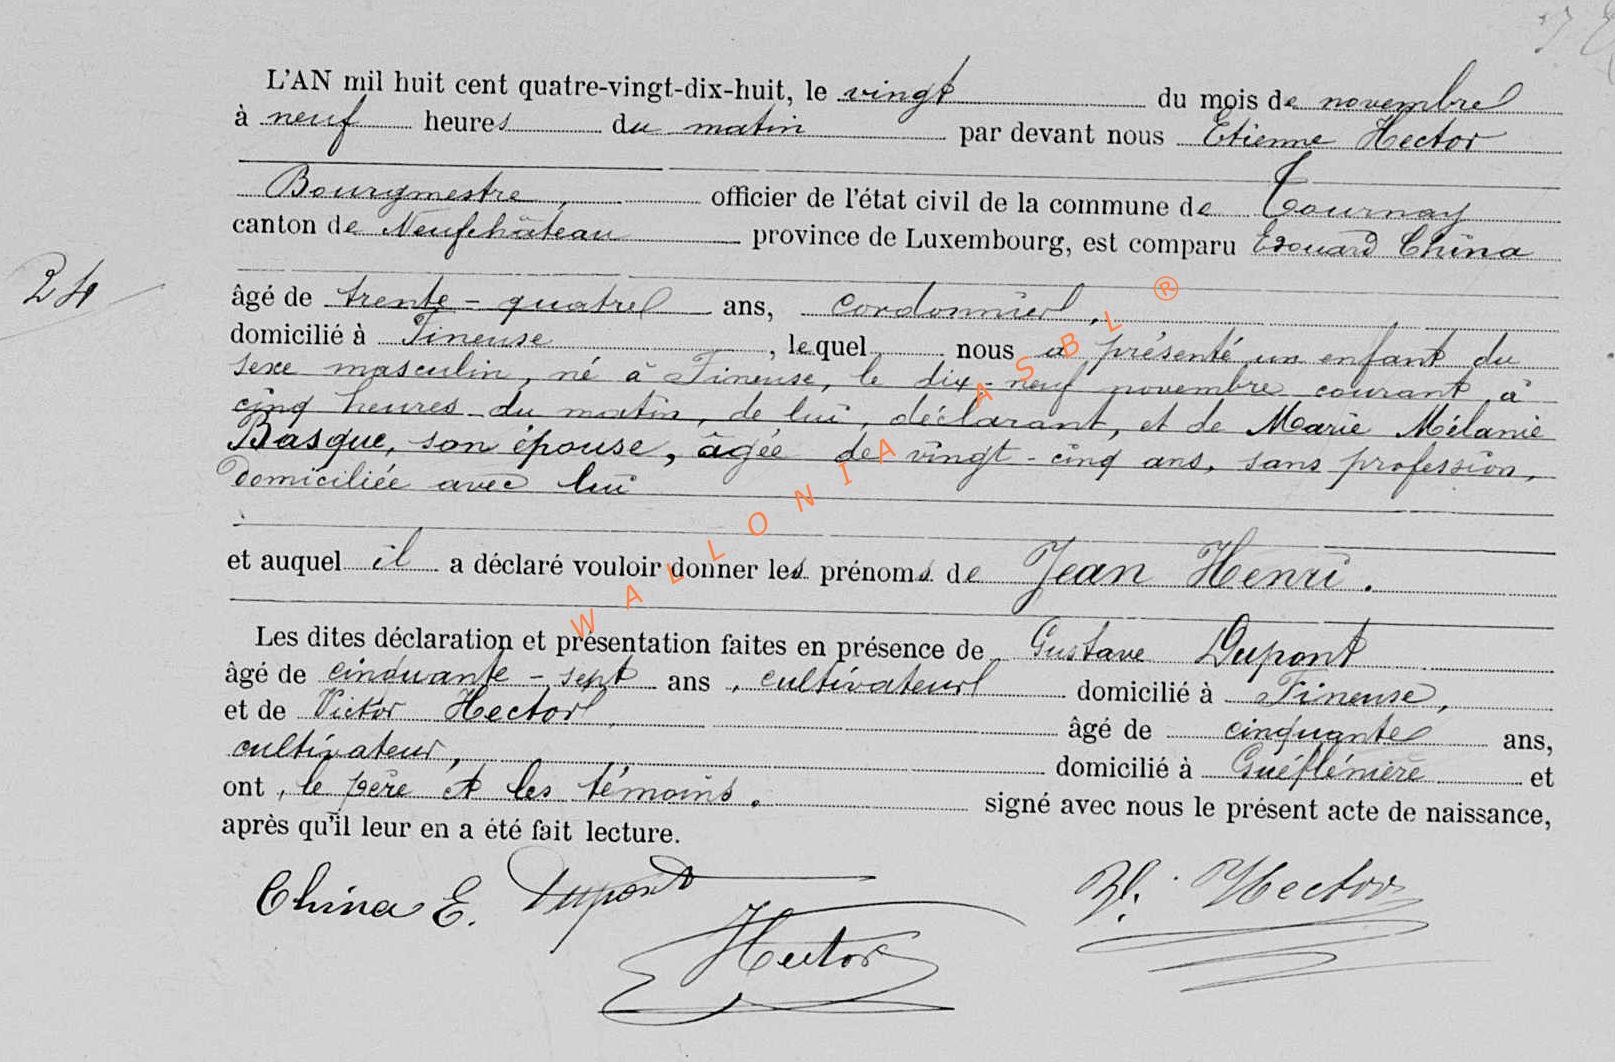 L'AN mil huit cent quatre-vingt-dix-huit, le vingt du mois de novembre
à neuf heures du matin par devant nous Etienne Hector
Bourgmestre, officier de l'état civil de la commune de Tournay
canton de Neufchâteau province de Luxembourg, est comparu Edouard China
24
âgé de trente-quatre ans, cordonnier,
domicilié à Tineuse, lequel nous a présenté un enfant du
sexe masculin, né à Tineuse, le dix-neuf novembre courant, à
cinq heures du matin, de lui, déclarant, et de Marie Mélanie
Basque, son épouse, âgée de vingt-cinq ans, sans profession,
domiciliée avec lui
et auquel il a déclaré vouloir donner les prénoms de Jean Henri.
Les dites déclaration et présentation faites en présence de Gustave Dupont
âgé de cinquante-sept ans, cultivateur domicilié à Tineuse,
et de Victor Hector, âgé de cinquante ans,
cultivateur, domicilié à Guéflémière et
ont, le père et les témoins. signé avec nous le présent acte de naissance,
après qu'il leur en a été fait lecture.
China E. Dupont V. Hector
Hector
WALLONIA ASBL ®